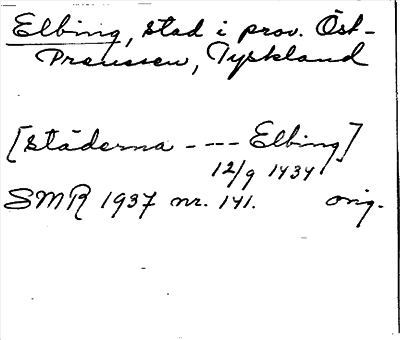 Elbing, stad i prov. Öst-
Preussen, Tyskland
[städerna - --- Elbing]
12/9 1434
SMR 1937 nr. 141. orig.